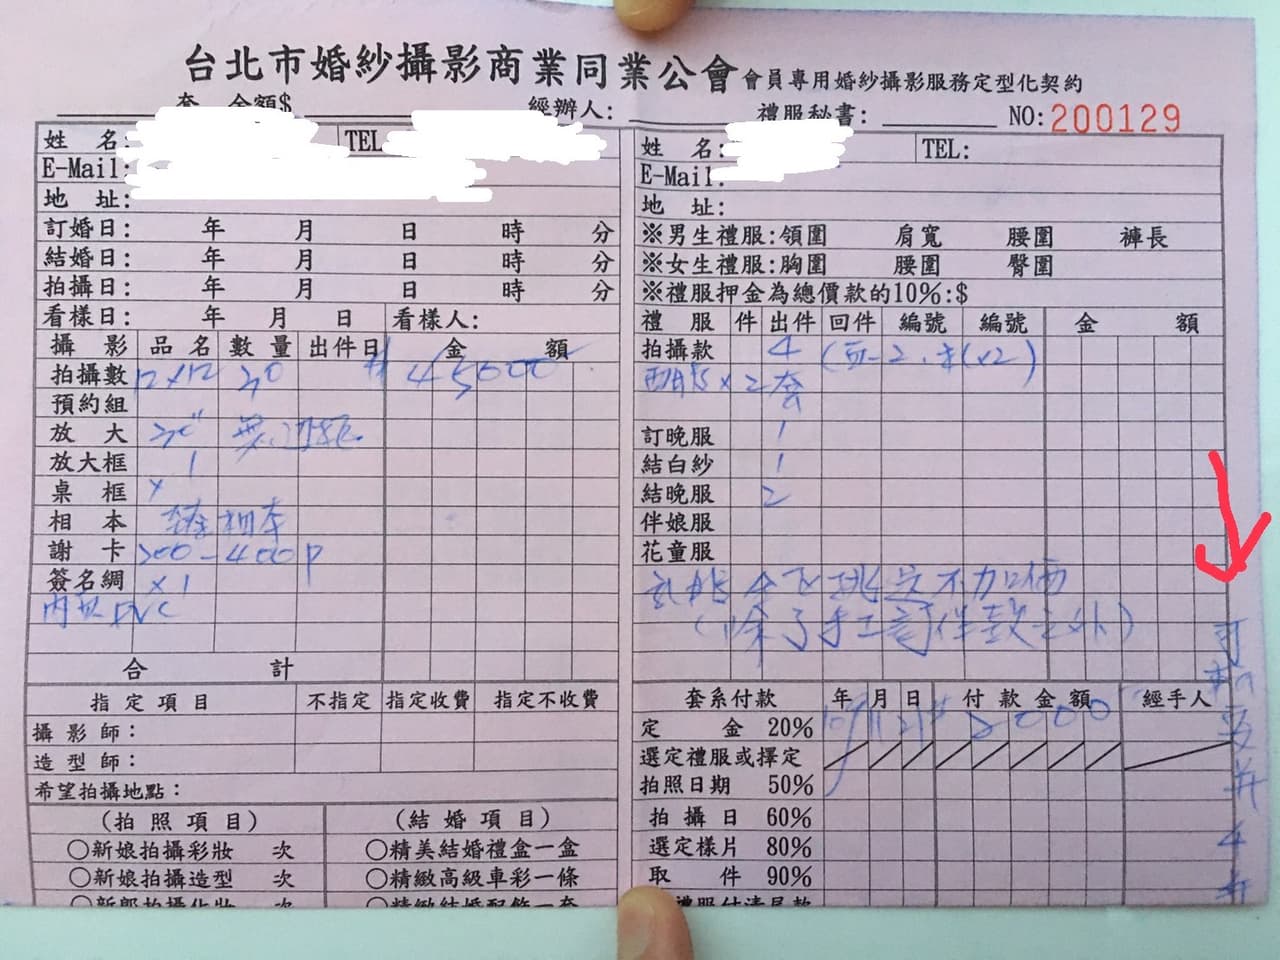 台北市婚紗攝影商業同業公會 會員專用婚紗攝影服務定型化契約
套 金額$ 經辦人: 禮服秘書: NO: 200129
姓 名: TEL
E-Mail:
地 址:
訂婚日: 年 月 日 時 分
結婚日: 年 月 日 時 分
拍攝日: 年 月 日 時 分
看樣日: 年 月 日 看樣人:
攝 影 品 名 數 量 出件日 金 額
拍攝數 12×12 30 45000
預約組
放 大 30"
放大框 1
桌 框 ×
相 本 相本
謝 卡 300-400P
簽名綢 ×1
內頁PVC
合 計
指定項目 不指定 指定收費 指定不收費
攝影師:
造型師:
希望拍攝地點:
(拍照項目) (結婚項目)
○新娘拍攝彩妝 次 ○精美結婚禮盒一盒
○新娘拍攝造型 次 ○精緻高級車彩一條
○新郎拍攝化妝 次 ○精緻結婚配飾一套
姓 名: TEL:
E-Mail:
地 址:
※男生禮服:領圍 肩寬 腰圍 褲長
※女生禮服:胸圍 腰圍 臀圍
※禮服押金為總價款的10%:$
禮 服 件 出件 回件 編號 編號 金 額
拍攝款 4
×2套
訂晚服 1
結白紗 1
結晚服 2
伴娘服
花童服
挑選不加價
(除了手工訂件款之外)
套系付款 年 月 日 付款金額 經手人
定 金 20%
選定禮服或擇定
拍照日期 50%
拍攝日 60%
選定樣片 80%
取 件 90%
禮服付清尾款